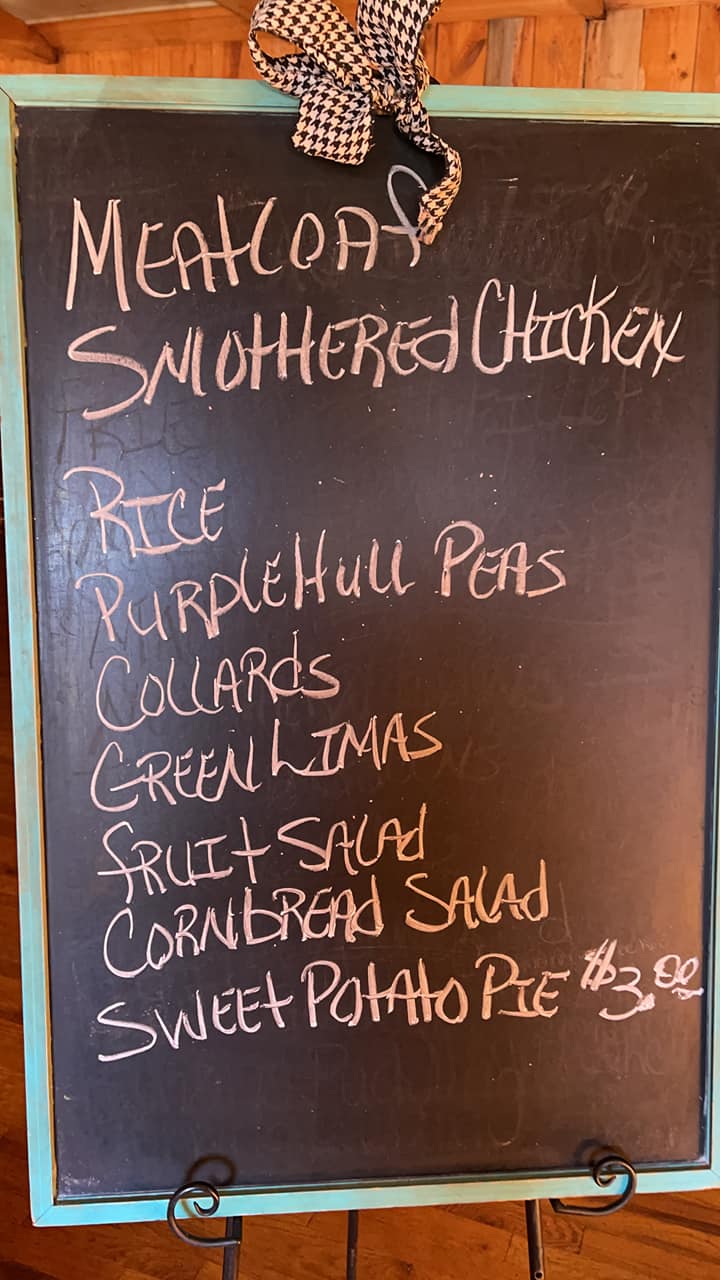 MEAtLOAf
SMOtHEREd CHICKEN
RICE
PURPLEHull PEAS
COllARds
GREEN LIMAS
fRUIt SALAd
CORNbREAd SALAd
SWEEt POtAtO PIE $3.00